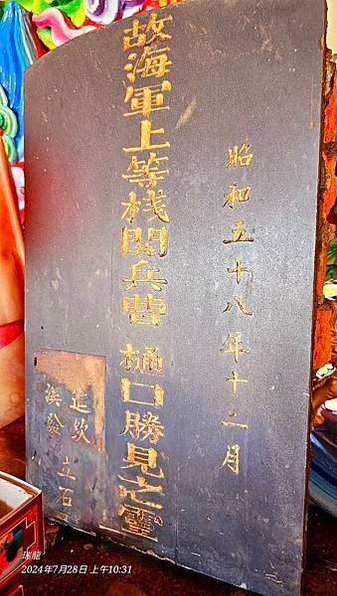 昭和五十八年十二月
故海軍上等栈関兵曹 樋口勝見之靈
進欽
發 立石
瑞龍
2024年7月28日 上午10:31